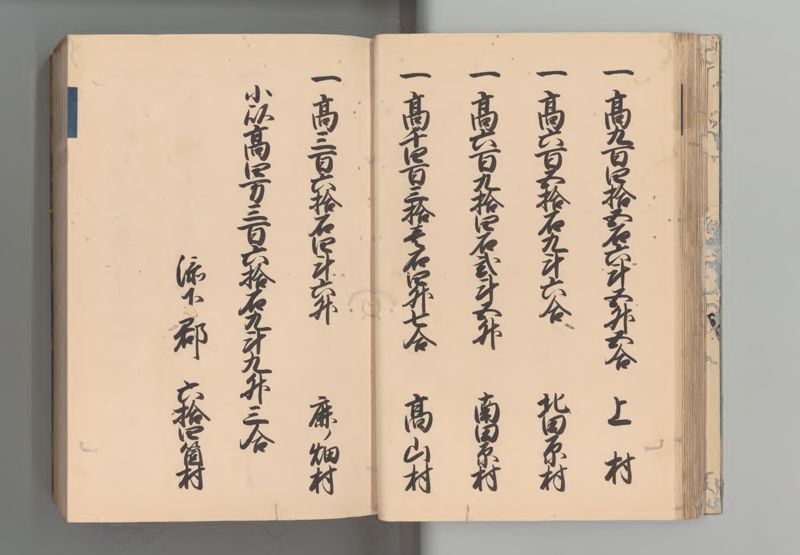 一高九百四拾五石六斗五升五合 上村
一高六百五拾石九斗六合 北田原村
一高六百九拾四石弐斗五升 南田原村
一高千四百三拾壱石四升七合 高山村
一高三百六拾石四斗六升 鹿ノ畑村
小以高四万三百六拾石九斗九升三合
添下郡 六拾四箇村